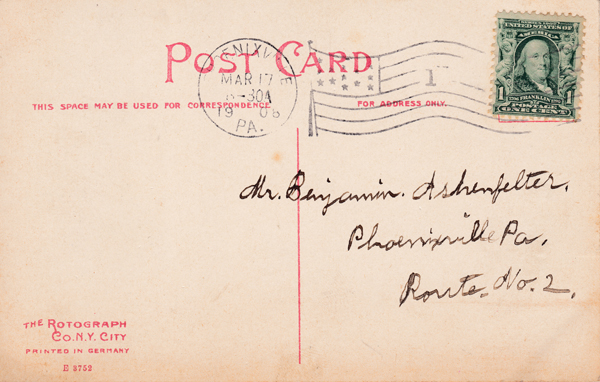 POST CARD
PHOENIXVILLE
MAR 17
8-30A
1908
PA.
1
SERIES 1902
UNITED STATES OF
AMERICA
1 FRANKLIN 1
POSTAGE
ONE CENT
THIS SPACE MAY BE USED FOR CORRESPONDENCE
FOR ADDRESS ONLY.
Mr. Benjamin. Ashenfelter.
Phoenixville Pa.
Route. No. 2.
THE ROTOGRAPH
CO. N.Y. CITY
PRINTED IN GERMANY
E 3752